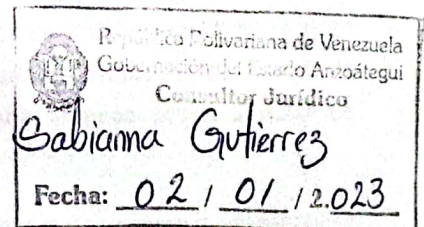 República Bolivariana de Venezuela
Gobernación del Estado Anzoátegui
Consultor Jurídico
Sabianna Gutierrez
Fecha: 02 / 01 / 2.023